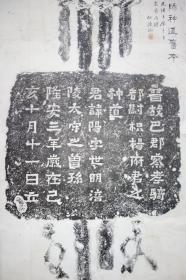 陽神道舊本
晉故巴郡察孝騎
都尉枳楊府君之
神道
君諱陽字世明涪
陵太守之曾孫
隆安三年歲在己
亥十月十一日立